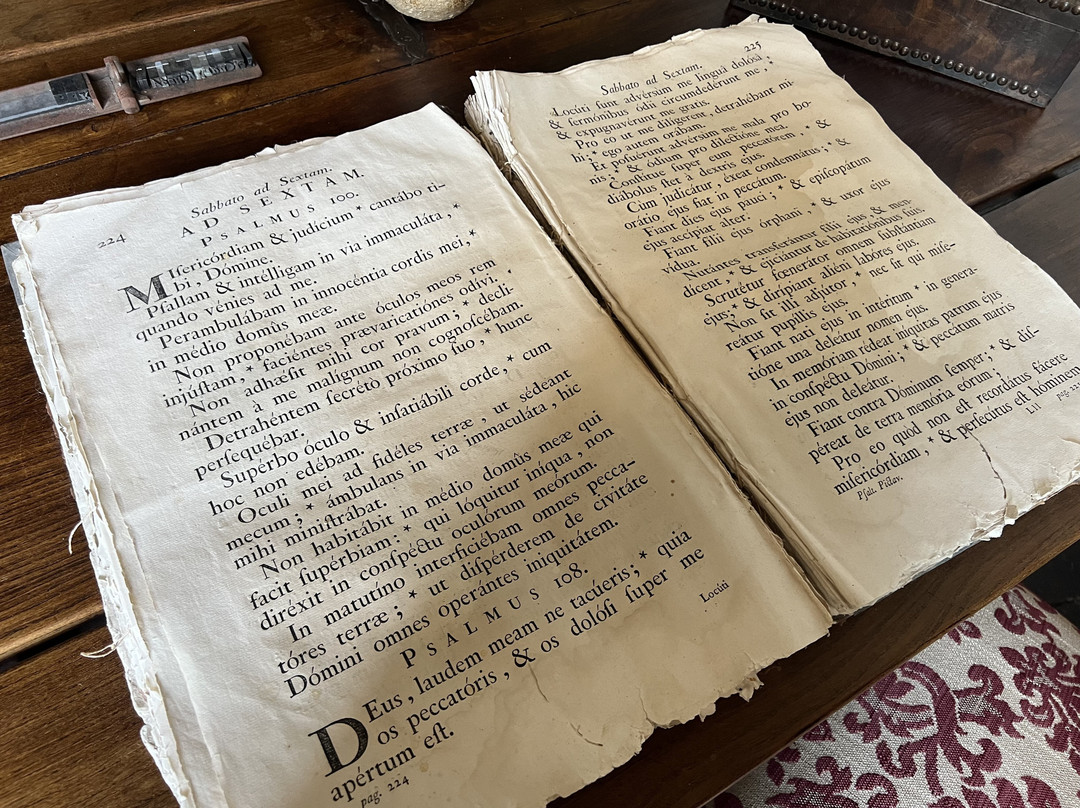 224
Sabbato ad Sextam.
AD SEXTAM.
PSALMUS 100.
MIſericórdiam & judicium * cantábo ti-
bi, Dómine.
Pſallam & intélligam in via immaculáta, *
quando vénies ad me.
Perambulábam in innocéntia cordis mei, *
in médio domûs meæ.
Non proponébam ante óculos meos rem
injúſtam, * faciéntes prævaricatiónes odívi.
Non adhæſit mihi cor pravum; * decli-
nántem à me malígnum non cognoſcébam.
Detrahéntem ſecrétò próximo ſuo, * hunc
perſequébar.
Supérbo óculo & inſatiábili corde, * cum
hoc non edébam.
Oculi mei ad fidéles terræ, ut sédeant
mecum; * ámbulans in via immaculáta, hic
mihi miniſtrábat.
Non habitábit in médio domûs meæ qui
facit ſupérbiam: * qui lóquitur iníqua, non
diréxit in conſpéctu oculórum meórum.
In matutíno interficiébam omnes pecca-
tóres terræ; * ut diſpérderem de civitáte
Dómini omnes operántes iniquitátem.
PSALMUS 108.
DEus, laudem meam ne tacúeris; * quia
os peccatóris, & os dolóſi ſuper me
apértum eſt.
Locúti
pag. 224
225
Sabbato ad Sextam.
Locúti ſunt advérsum me linguâ dolósâ,
& ſermónibus ódii circumdedérunt me, *
& expugnavérunt me gratis.
Pro eo ut me dilígerent, detrahébant mi-
hi; * ego autem orábam.
Et poſuérunt advérsùm me mala pro bo-
nis, * & ódium pro dilectióne mea.
Conſtítue ſuper eum peccatórem, * &
diábolus ſtet à dextris ejus.
Cùm judicátur, éxeat condemnátus; * &
orátio ejus fiat in peccátum.
Fiant dies ejus pauci; * & epiſcopátum
ejus accípiat alter.
Fiant fílii ejus órphani, * & uxor ejus
vídua.
Nutántes transferántur fílii ejus, & men-
dícent, * & ejiciántur de habitatiónibus ſuis.
Scrutétur fœnerátor omnem ſubſtántiam
ejus; * & dirípiant aliéni labóres ejus.
Non ſit illi adjútor, * nec ſit qui miſe-
reátur pupíllis ejus.
Fiant nati ejus in intéritum * in genera-
tióne una deleátur nomen ejus
In memóriam rédeat iníquitas patrum ejus
in conſpéctu Dómini; * & peccátum matris
ejus non deleátur.
Fiant contra Dóminum ſemper; * & diſ-
péreat de terra memória eórum;
Pro eo quod non eſt recordátus fácere
miſericórdiam, * & perſecútus eſt hóminem
Pſalt. Piſtav.
Lll